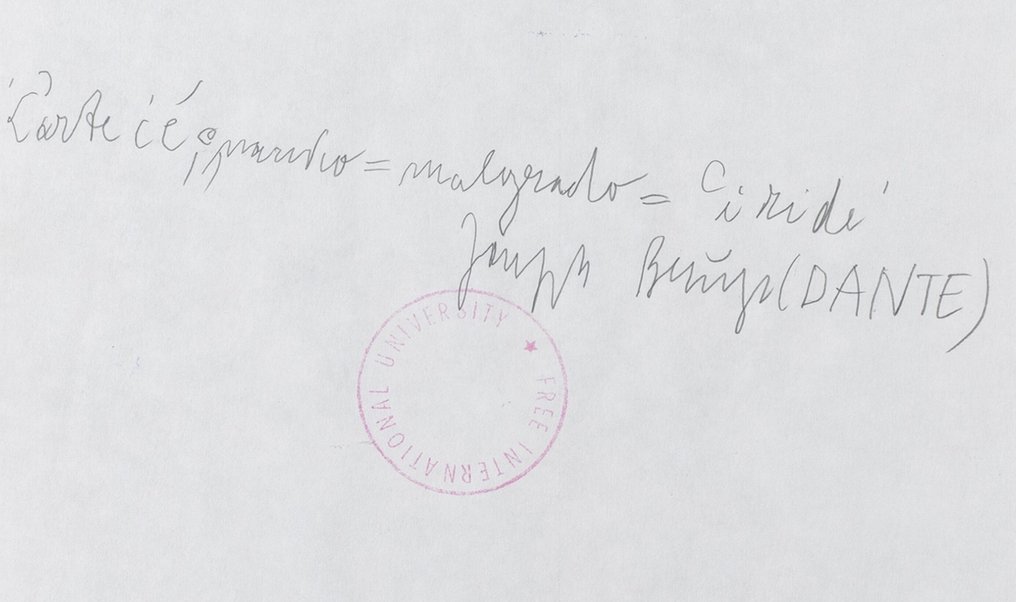 L'arte c'é, quando = malgrado = Ci ride'
Joseph Beuys (DANTE)
FREE INTERNATIONAL UNIVERSITY